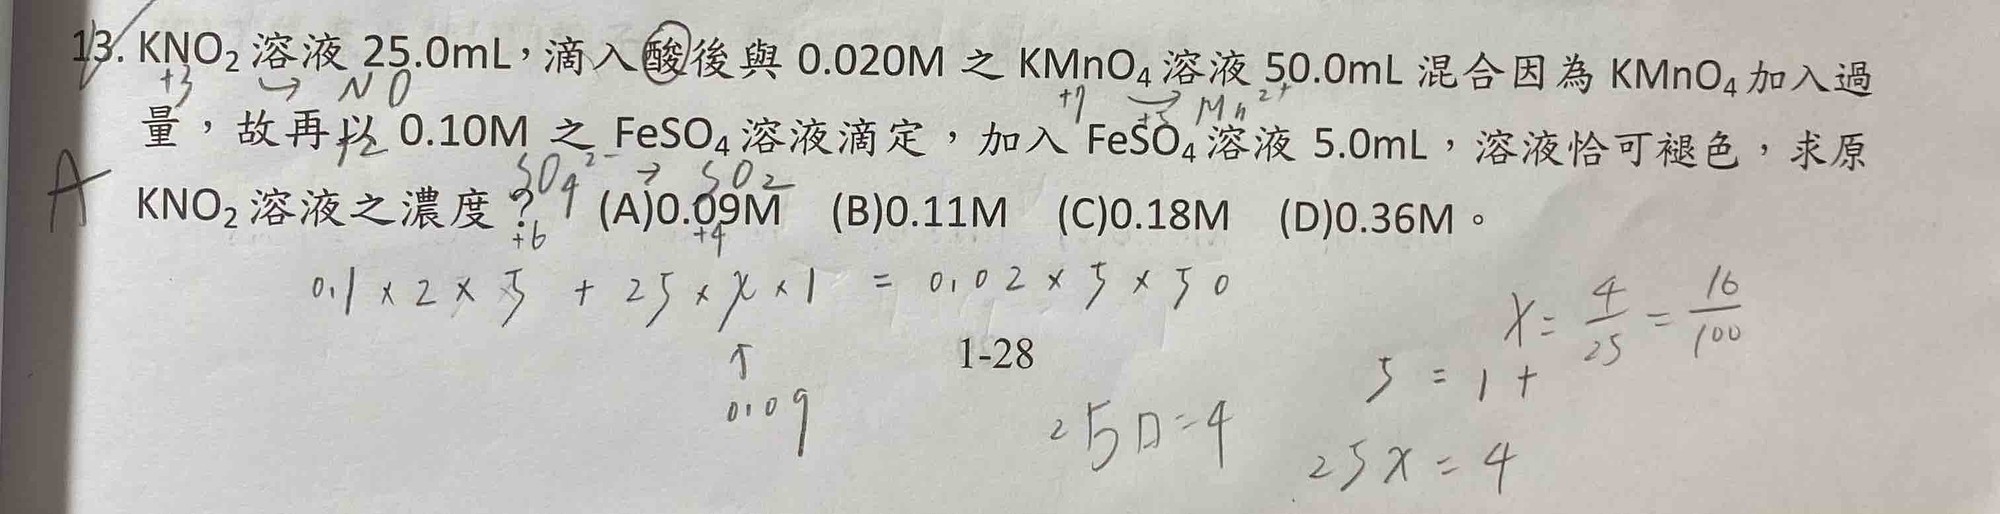 13. KNO₂ 溶液 25.0mL，滴入酸後與 0.020M 之 KMnO₄ 溶液 50.0mL 混合因為 KMnO₄ 加入過
+3 → NO +7 → Mn²⁺
量，故再以 0.10M 之 FeSO₄ 溶液滴定，加入 FeSO₄ 溶液 5.0mL，溶液恰可褪色，求原
+2 SO₄²⁻ → SO₂
A KNO₂ 溶液之濃度？ (A)0.09M (B)0.11M (C)0.18M (D)0.36M。
+6 +4
0.1 × 2 × 5 + 25 × x × 1 = 0.02 × 5 × 50
x = 4/25 = 16/100
↑ 1-28
5 = 1 +
0.09
25□=4
25x = 4